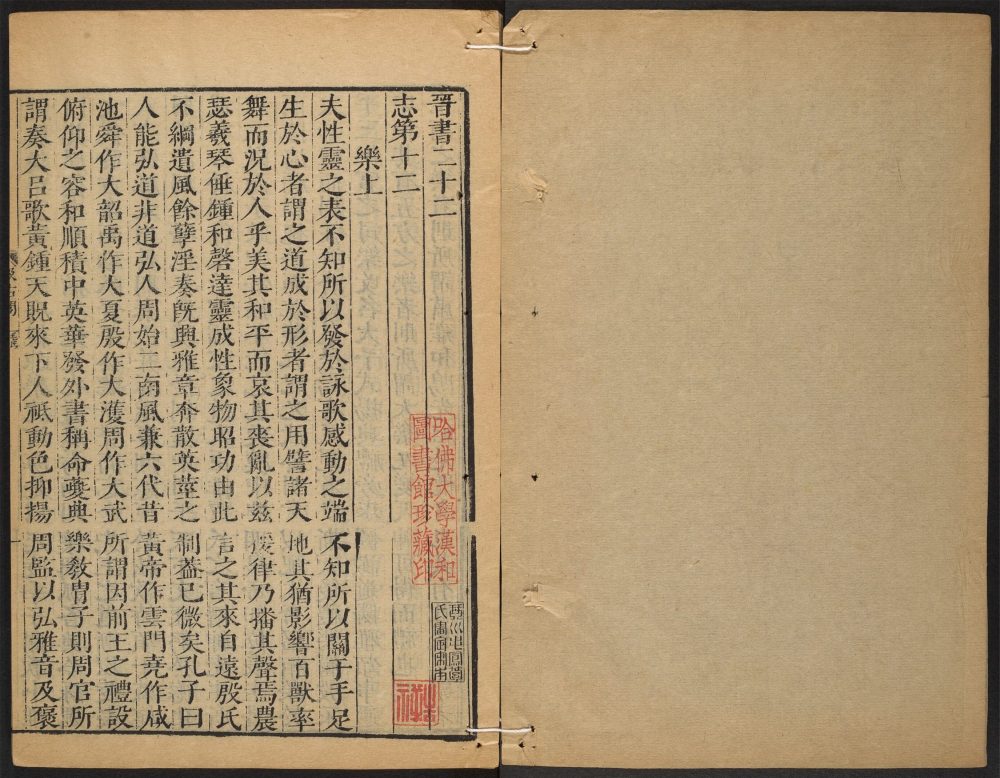 晉書二十二
志第十二
樂上
夫性靈之表不知所以發於詠歌感動之端不知所以關于手足
生於心者謂之道成於形者謂之用譬諸天地其猶影響百獸率
舞而況於人乎美其和平而哀其喪亂以茲援律乃播其聲焉農
瑟羲琴倕鍾和磬達靈成性象物昭功由此言之其來自遠殷氏
不綱遺風餘孽淫奏旣興雅章奔散英莖之制葢已微矣孔子曰
人能弘道非道弘人周始二南風兼六代昔黃帝作雲門堯作咸
池舜作大韶禹作大夏殷作大濩周作大武所謂因前王之禮設
俯仰之容和順積中英華發外書稱命夔典樂敎胄子則周官所
謂奏大呂歌黃鍾天貺來下人祗動色抑揚周監以弘雅音及褒
哈佛大學漢和
圖書館珍藏印